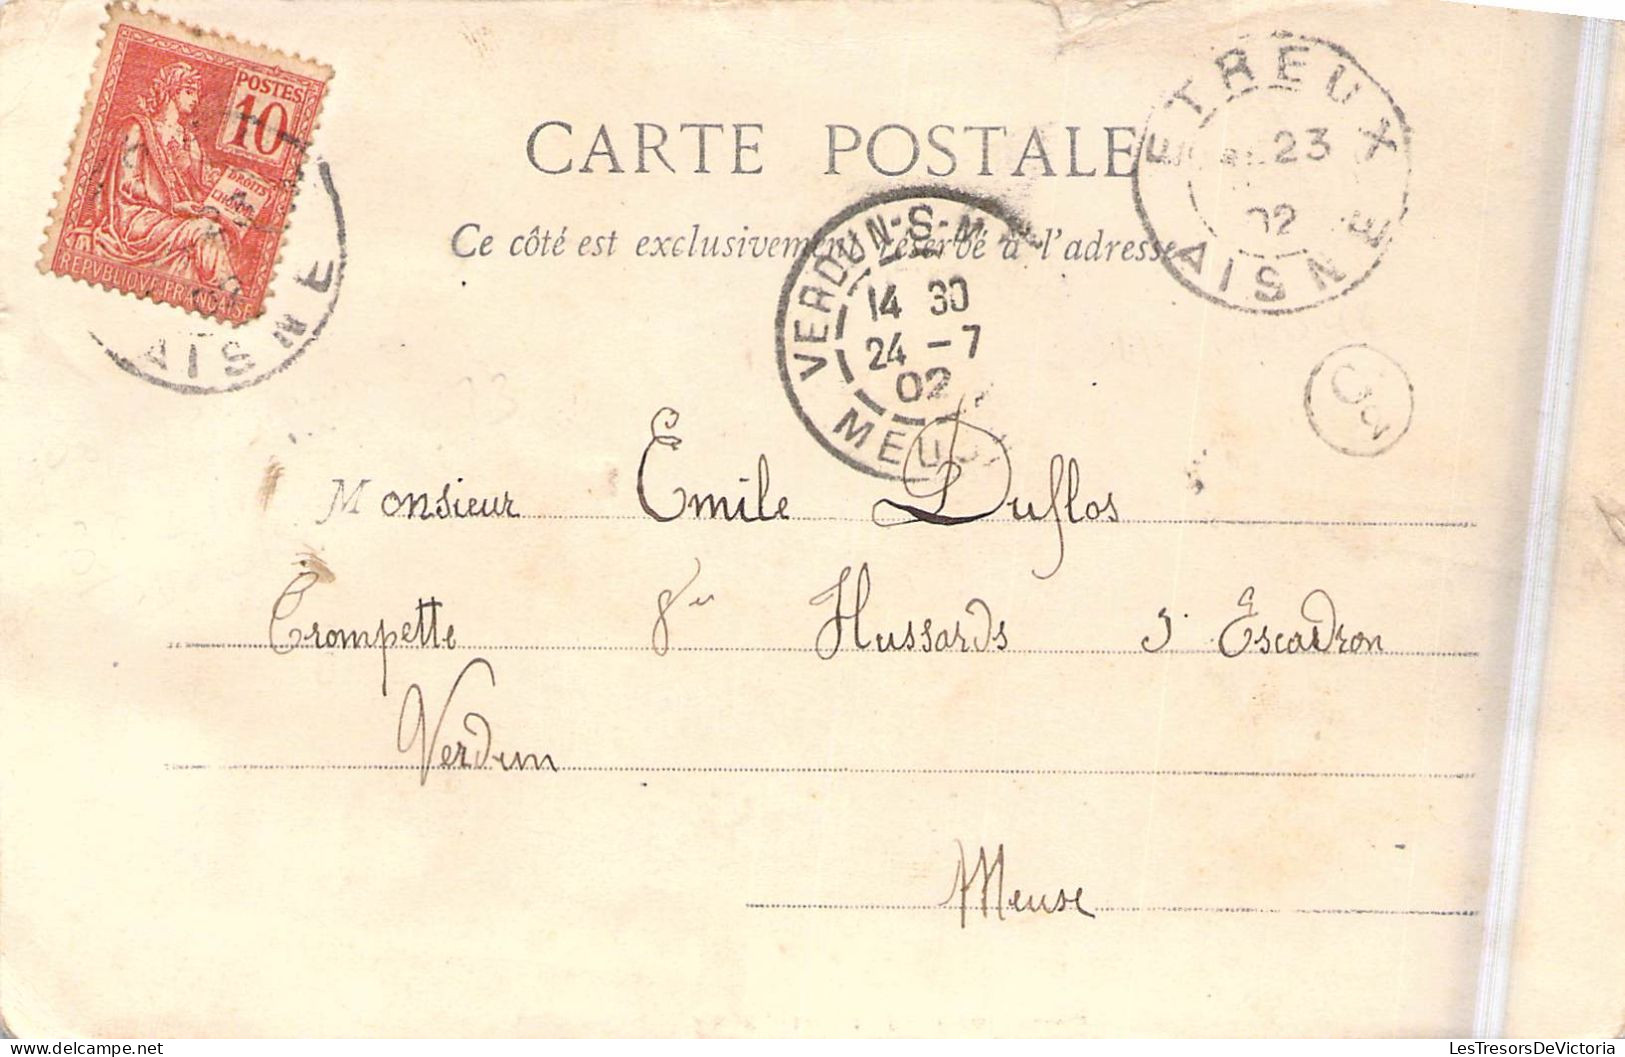 POSTES
10
DROITS
DE
L'HOMME
REPVBLIQVE FRANÇAISE
AISNE
CARTE POSTALE
ETREUX
23
02
AISNE
Ce côté est exclusivement réservé à l'adresse
VERDUN-S-M
14 30
24 - 7
02
MEUSE
Monsieur Emile Duflos
Trompette 8e Hussards 3 Escadron
Verdun
Meuse
LesTresorsDeVictoria